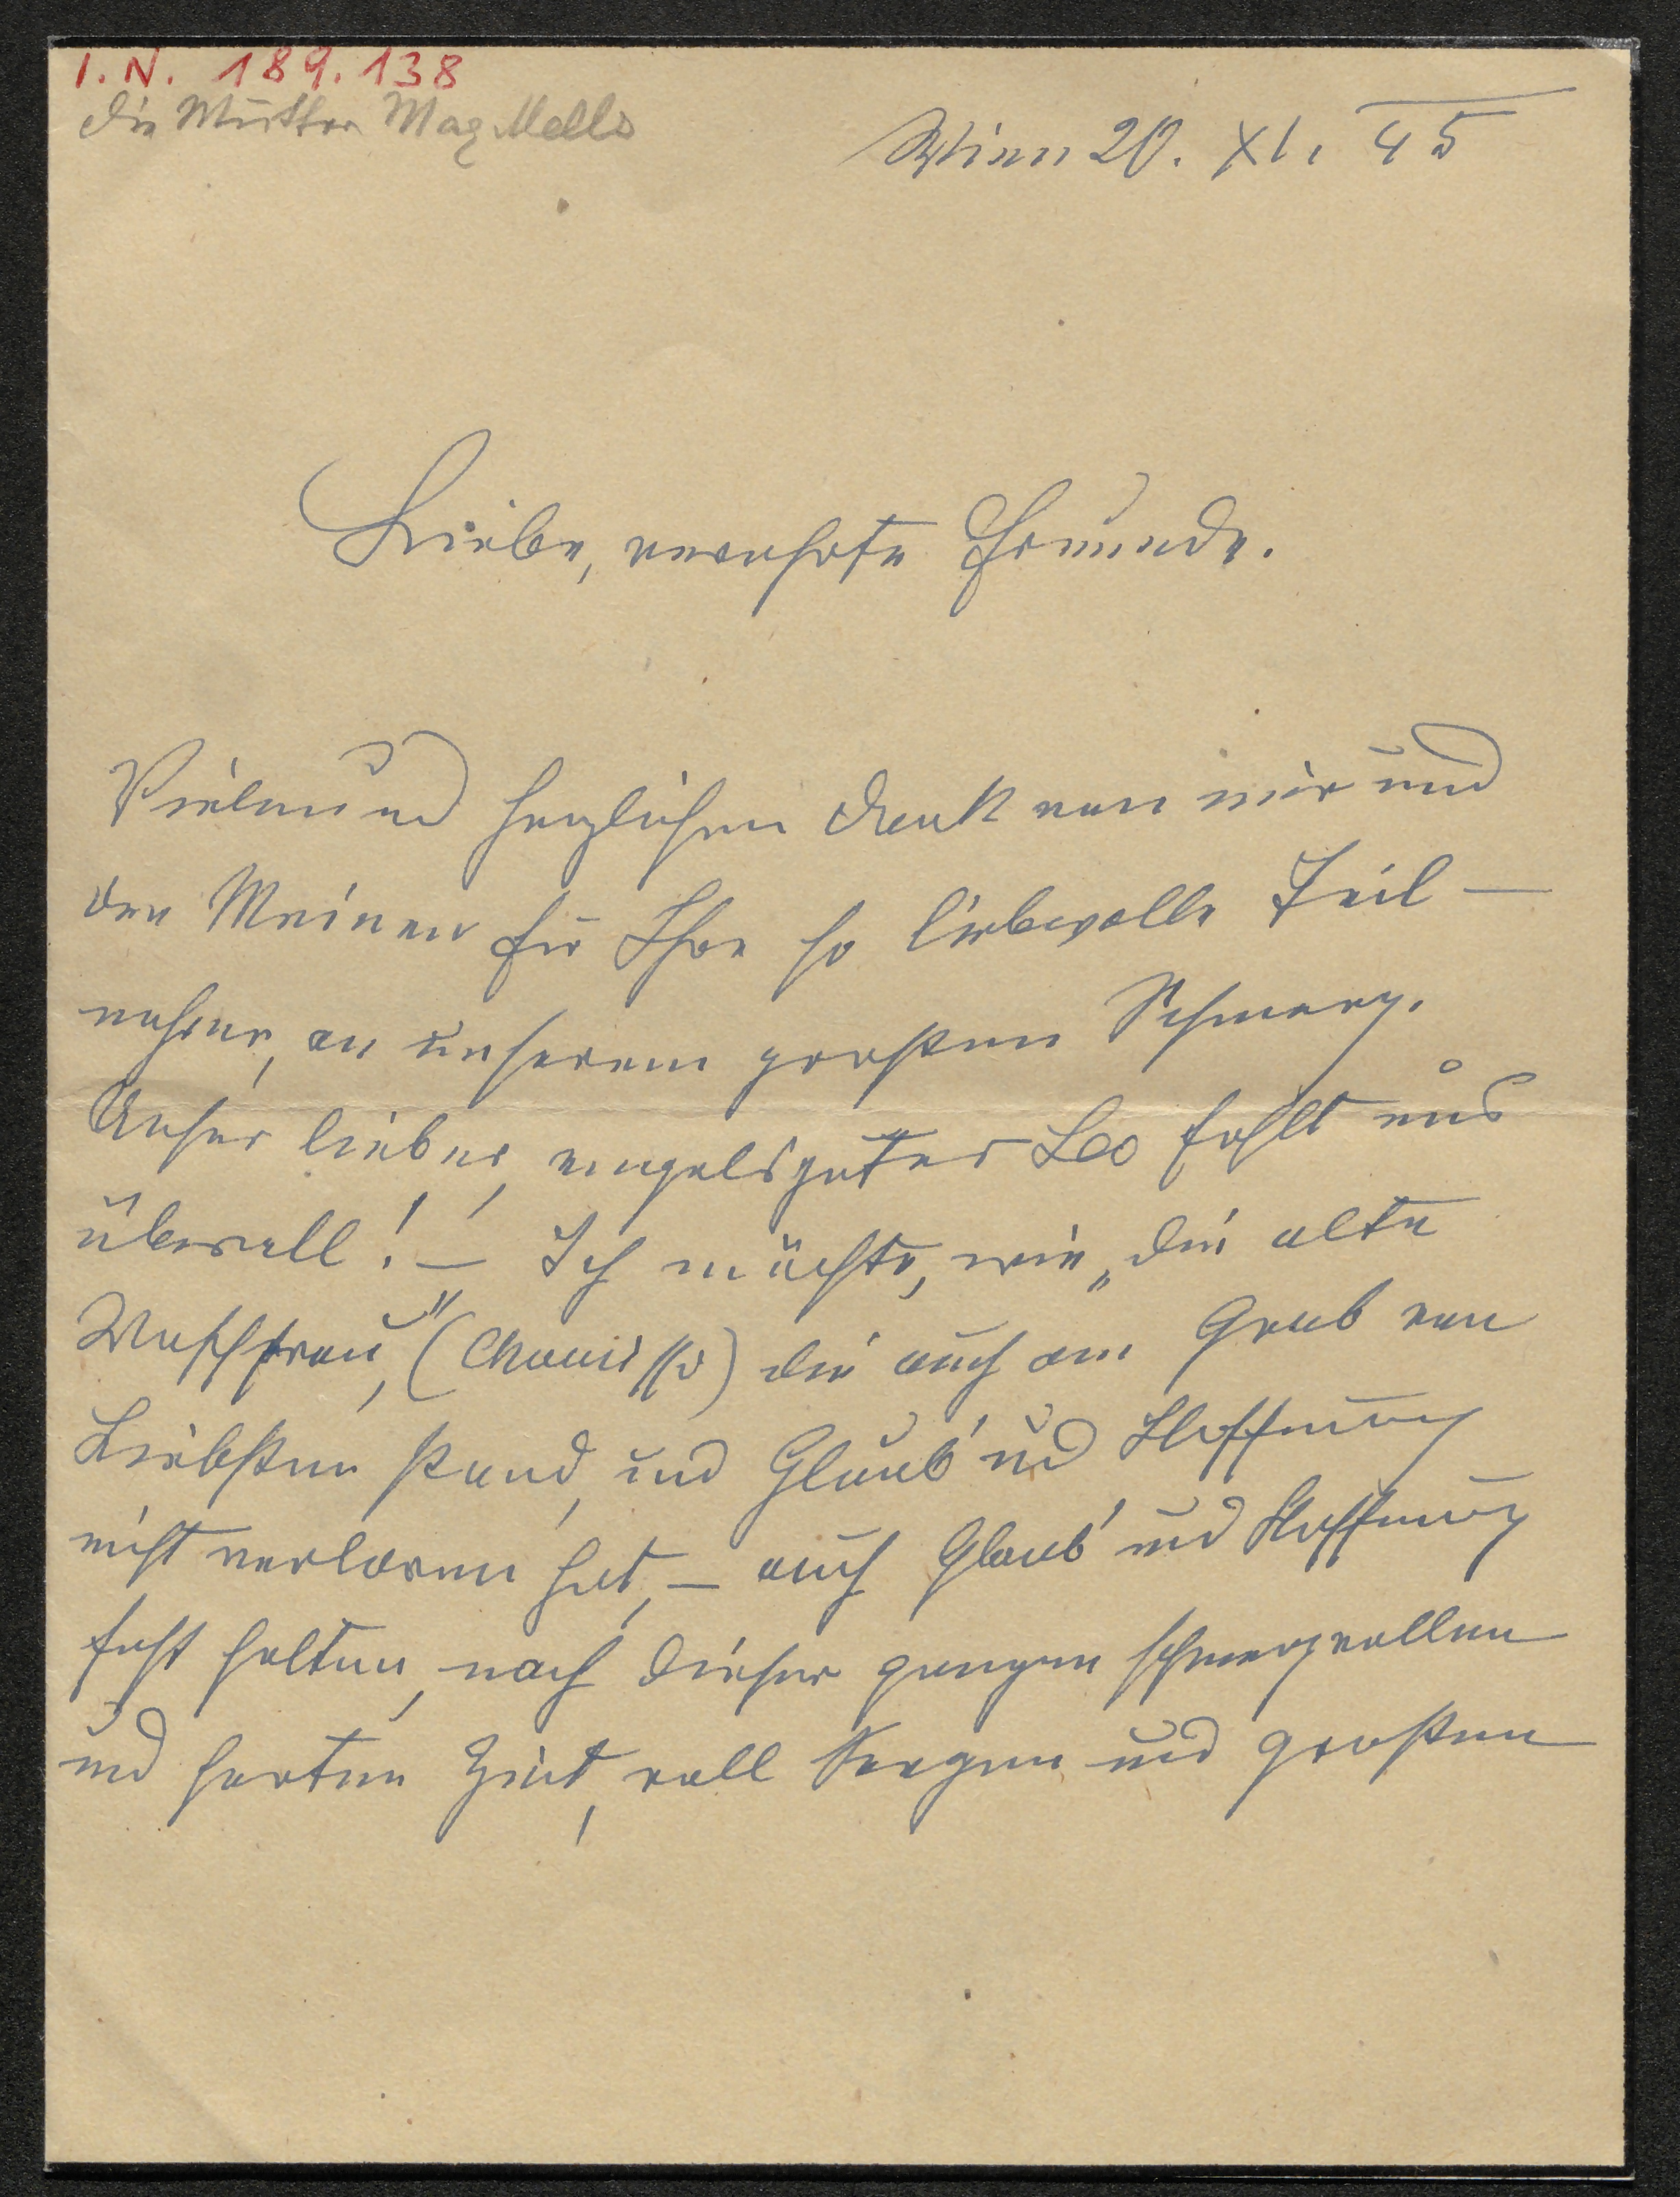 I.N. 189.138
die Mutter Mag Mells
Wien 20. XI. 45
Liebe, verehrte Freunde.
Vielen und herzlichen Dank von mir und
den Meinen für Ihre so liebevolle Teil-
nahme, an unserem großen Schmerz.
Unser lieber, engelsguter Leo fehlt uns
überall! – Ich möchte, wie „die alte
Waschfrau", (Chamisso) die auch am Grab von
Liebsten stand, und Glaub' und Hoffnung
nicht verloren hat, – auch Glaub' und Hoffnung
fest halten, nach dieser ganzen schmerzvollen
und harten Zeit, voll Sorgen und großen